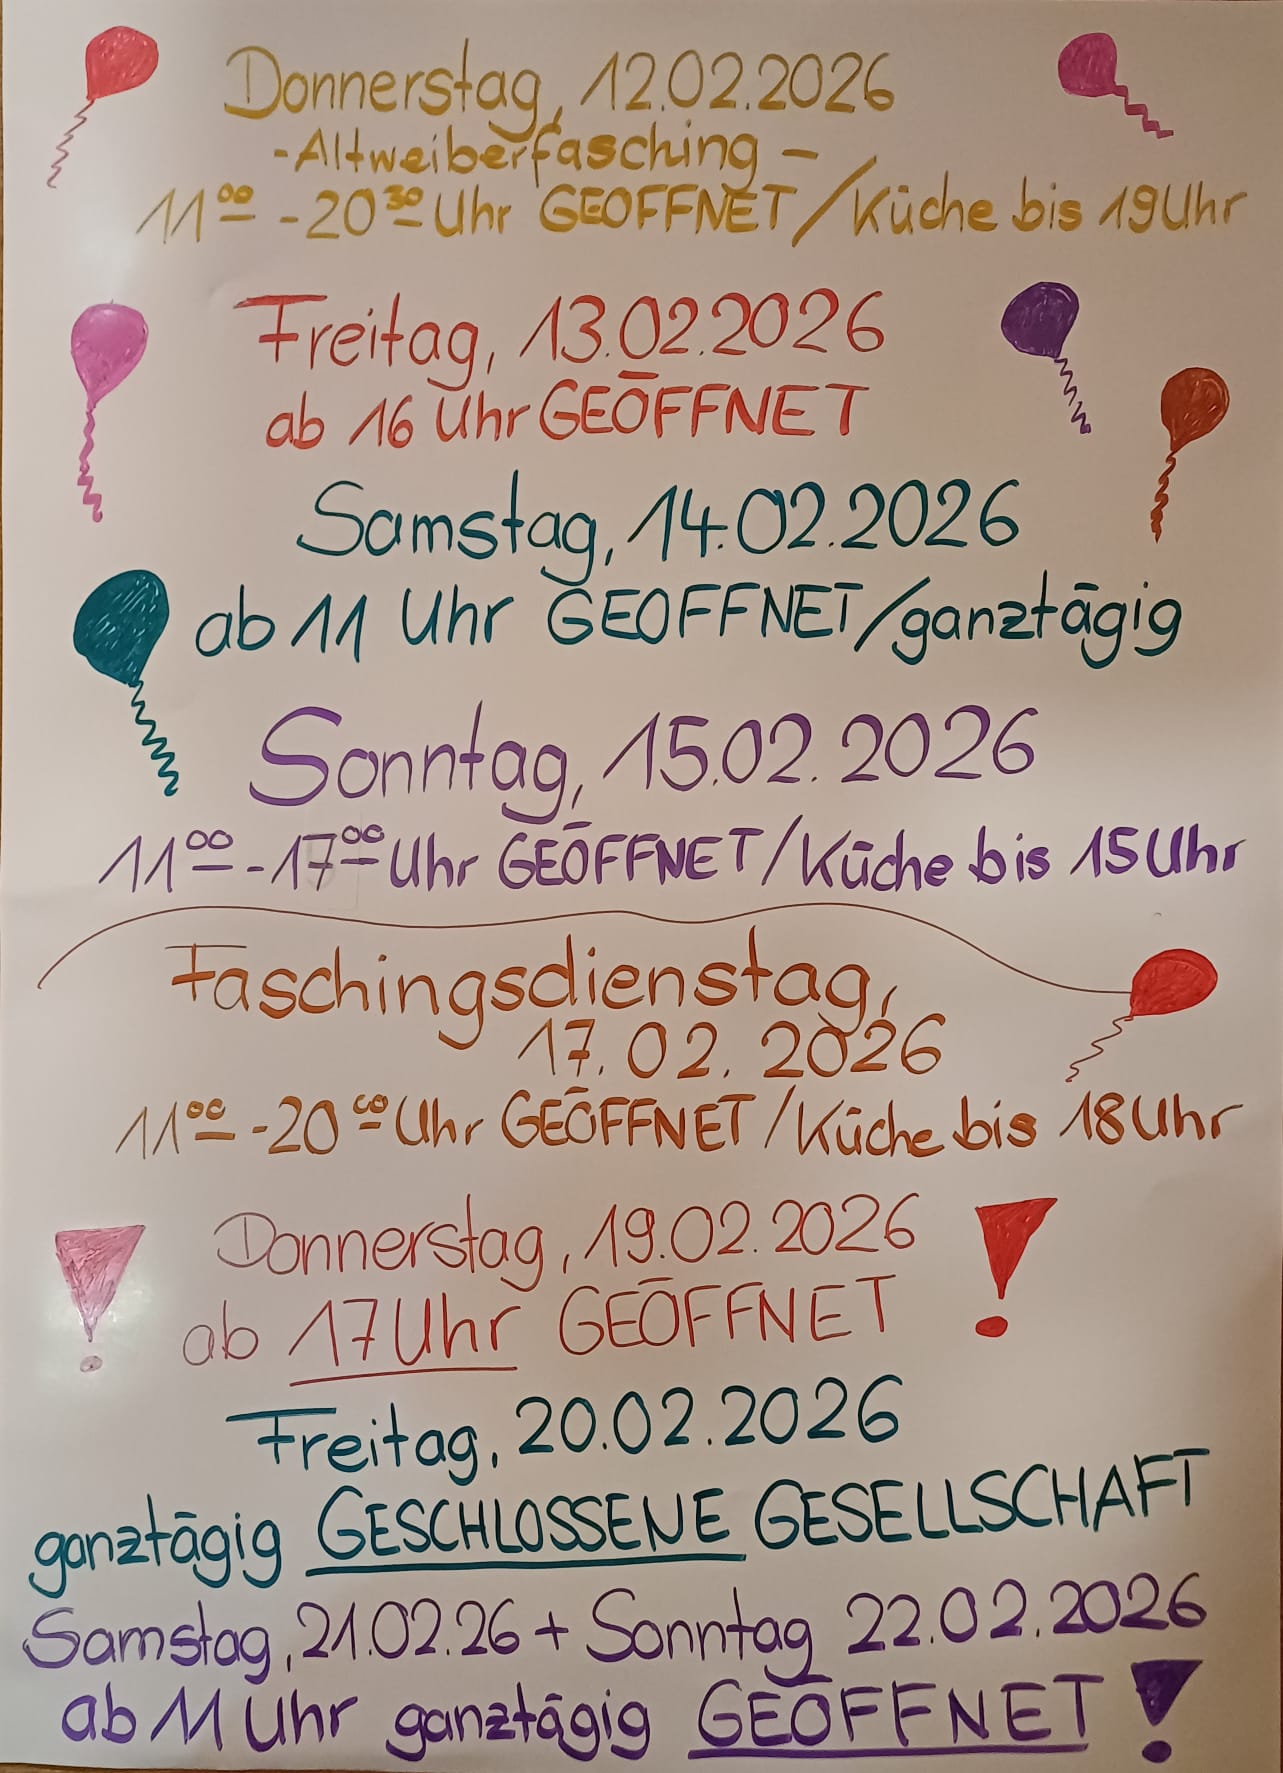 Donnerstag, 12.02.2026
- Altweiberfasching -
11⁰⁰ - 20³⁰ Uhr GEÖFFNET / Küche bis 19 Uhr
Freitag, 13.02.2026
ab 16 Uhr GEÖFFNET
Samstag, 14.02.2026
ab 11 Uhr GEÖFFNET / ganztägig
Sonntag, 15.02.2026
11⁰⁰ - 17⁰⁰ Uhr GEÖFFNET / Küche bis 15 Uhr
Faschingsdienstag,
17.02.2026
11⁰⁰ - 20⁰⁰ Uhr GEÖFFNET / Küche bis 18 Uhr
Donnerstag, 19.02.2026
ab 17 Uhr GEÖFFNET !
Freitag, 20.02.2026
ganztägig GESCHLOSSENE GESELLSCHAFT
Samstag, 21.02.26 + Sonntag 22.02.2026
ab 11 Uhr ganztägig GEÖFFNET !